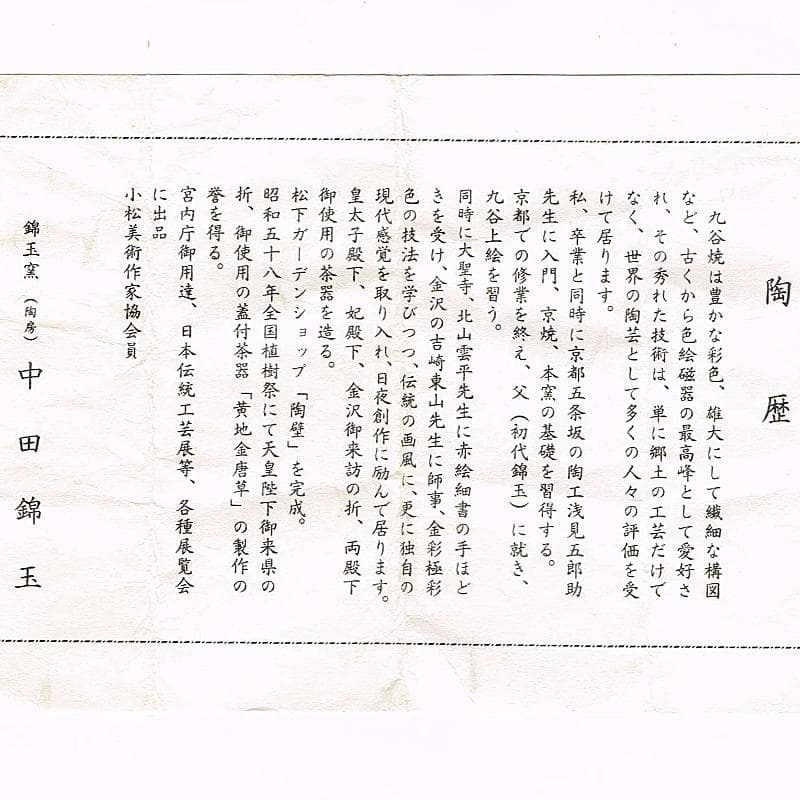 陶歴
九谷焼は豊かな彩色、雄大にして繊細な構図
など、古くから色絵磁器の最高峰として愛好さ
れ、その秀れた技術は、単に郷土の工芸だけで
なく、世界の陶芸として多くの人々の評価を受
けて居ります。
私、卒業と同時に京都五条坂の陶工浅見五郎助
先生に入門、京焼、本窯の基礎を習得する。
京都での修業を終え、父（初代錦玉）に就き、
九谷上絵を習う。
同時に大聖寺、北山雲平先生に赤絵細書の手ほど
きを受け、金沢の吉崎東山先生に師事、金彩極彩
色の技法を学びつつ、伝統の画風に、更に独自の
現代感覚を取り入れ、日夜創作に励んで居ります。
皇太子殿下、妃殿下、金沢御来訪の折、両殿下
御使用の茶器を造る。
松下ガーデンショップ「陶壁」を完成。
昭和五十八年全国植樹祭にて天皇陛下御来県の
折、御使用の蓋付茶器「黄地金唐草」の製作の
誉を得る。
宮内庁御用達、日本伝統工芸展等、各種展覧会
に出品
小松美術作家協会員
錦玉窯（陶房）中田錦玉